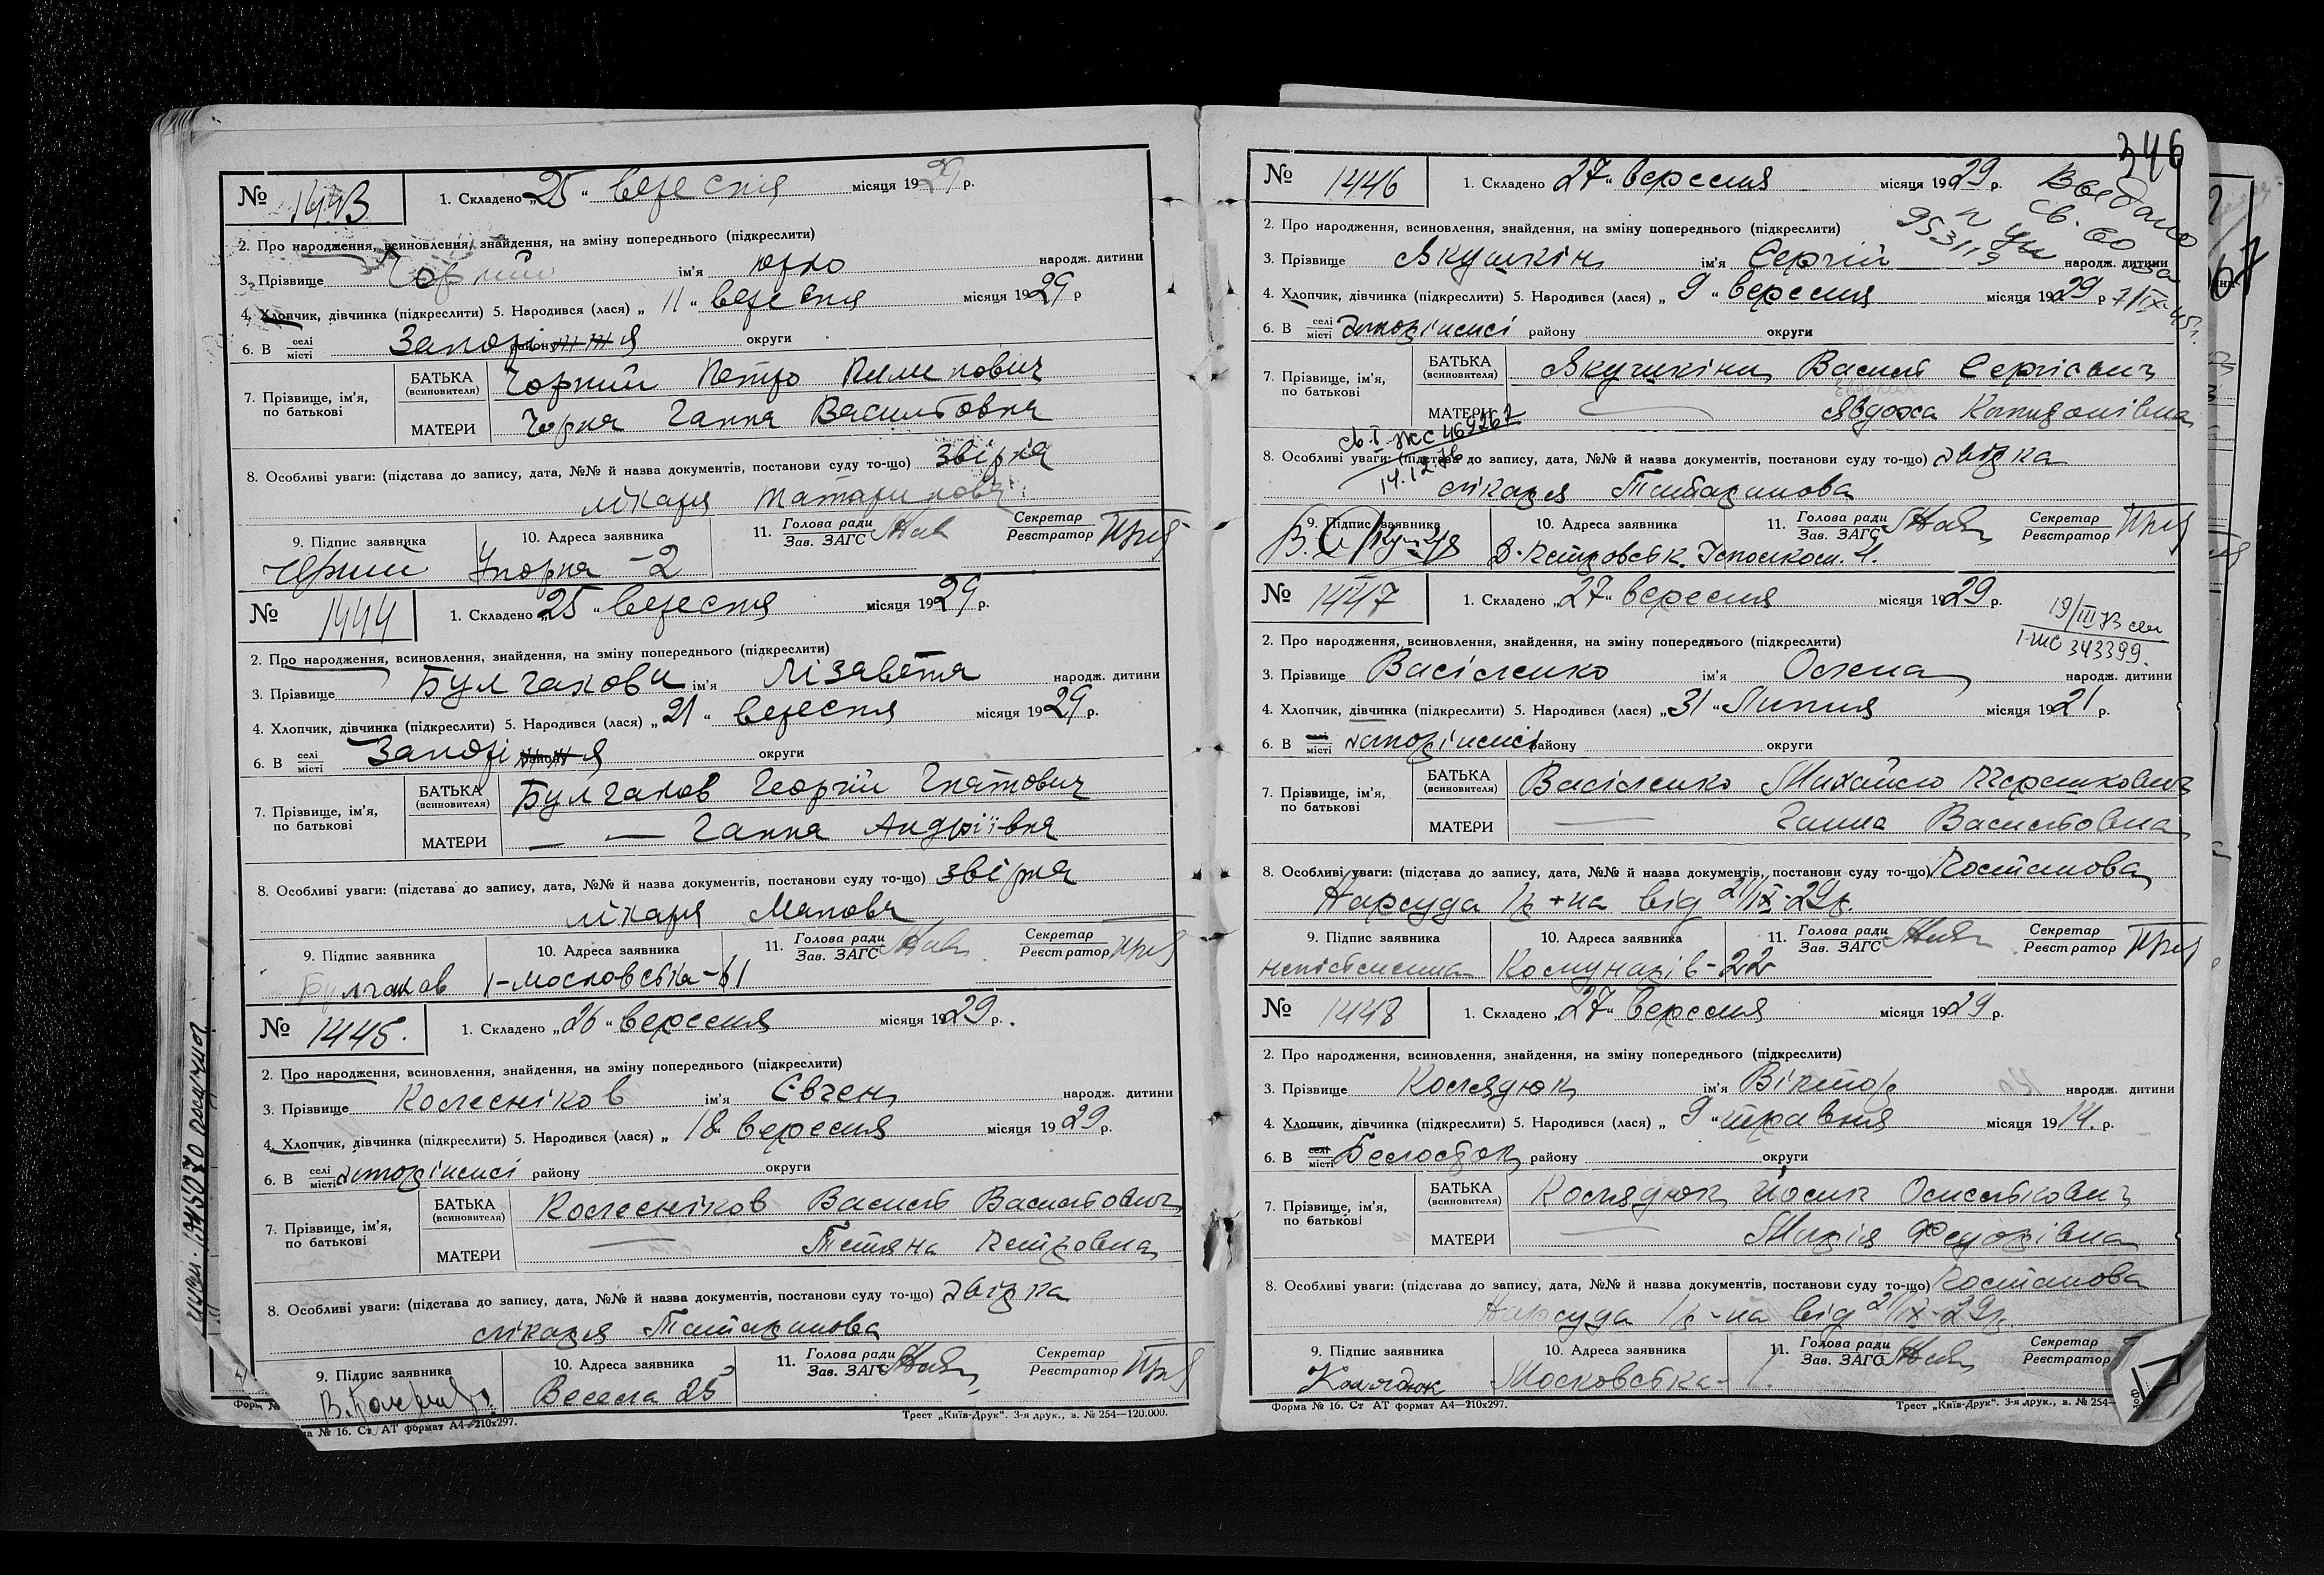 № 1443 1. Складено „25“ вересня місяця 1929 р.
2. Про народження, всиновлення, знайдення, на зміну попереднього (підкреслити)
3. Прізвище Чорний ім'я Юрко народж. дитини
4. Хлопчик, дівчинка (підкреслити) 5. Народився (лася) „11“ вересня місяця 1929 р
6. В селі місті Запоріжжя району округи
7. Прізвище, ім'я, по батькові
БАТЬКА (всиновителя) Чорний Петро Пилипович
МАТЕРИ Чорна Ганна Васильовна
8. Особливі уваги: (підстава до запису, дата, №№ й назва документів, постанови суду то-що) звірка
лікаря Татаринова
9. Підпис заявника 10. Адреса заявника 11. Голова ради Зав. ЗАГС Секретар Реєстратор
Чорний Упорна - 2
№ 1444 1. Складено „25“ вересня місяця 1929 р.
2. Про народження, всиновлення, знайдення, на зміну попереднього (підкреслити)
3. Прізвище Булгакови ім'я Лізавета народж. дитини
4. Хлопчик, дівчинка (підкреслити) 5. Народився (лася) „21“ вересня місяця 1929 р.
6. В селі місті Запоріжжя району округи
7. Прізвище, ім'я, по батькові
БАТЬКА (всиновителя) Булгаков Георгій Гнатович
МАТЕРИ — — Ганна Андріївна
8. Особливі уваги: (підстава до запису, дата, №№ й назва документів, постанови суду то-що) звірка
лікаря Манова
9. Підпис заявника 10. Адреса заявника 11. Голова ради Зав. ЗАГС Секретар Реєстратор
Булгаков 1-Московська-61
№ 1445. 1. Складено „26“ вересня місяця 1929 р.
2. Про народження, всиновлення, знайдення, на зміну попереднього (підкреслити)
3. Прізвище Колесніков ім'я Євген народж. дитини
4. Хлопчик, дівчинка (підкреслити) 5. Народився (лася) „18“ вересня місяця 1929 р.
6. В селі місті Запоріжжі району округи
7. Прізвище, ім'я, по батькові
БАТЬКА (всиновителя) Колесніков Василь Васильович
МАТЕРИ — Тетяна Петровна
8. Особливі уваги: (підстава до запису, дата, №№ й назва документів, постанови суду то-що) звірка
лікаря Татаринова
9. Підпис заявника 10. Адреса заявника 11. Голова ради Зав. ЗАГС Секретар Реєстратор
Весела 25
Форма № 16. Ст АТ формат А4—210х297. Трест „Київ-Друк“. 3-я друк., з. № 254—120.000.
346
№ 1446 1. Складено „27“ вересня місяця 1929 р.
Выдано
2. Про народження, всиновлення, знайдення, на зміну попереднього (підкреслити)
3. Прізвище Якушкін ім'я Сергій народж. дитини
4. Хлопчик, дівчинка (підкреслити) 5. Народився (лася) „9“ вересня місяця 1929 р
6. В селі місті Запоріжжі району округи
7. Прізвище, ім'я, по батькові
БАТЬКА (всиновителя) Якушкін Василь Сергієвич
МАТЕРИ — Явдоха
св. I ЖС 469267
14.12.76
8. Особливі уваги: (підстава до запису, дата, №№ й назва документів, постанови суду то-що) звірка
лікаря Татаринова
9. Підпис заявника 10. Адреса заявника 11. Голова ради Зав. ЗАГС Секретар Реєстратор
Д-Петровськ.
№ 1447 1. Складено „27“ вересня місяця 1929 р.
19/III 73
343399.
2. Про народження, всиновлення, знайдення, на зміну попереднього (підкреслити)
3. Прізвище Васіленко ім'я Олена народж. дитини
4. Хлопчик, дівчинка (підкреслити) 5. Народився (лася) „31“ Липня місяця 1921 р.
6. В селі місті Запоріжжі району округи
7. Прізвище, ім'я, по батькові
БАТЬКА (всиновителя) Васіленко Михайло
МАТЕРИ — Ганна Васильовна
8. Особливі уваги: (підстава до запису, дата, №№ й назва документів, постанови суду то-що) Постанова
Нарсуда 1 р-на від 21/IX-29р.
9. Підпис заявника 10. Адреса заявника 11. Голова ради Зав. ЗАГС Секретар Реєстратор
неписьменна Комунарів-22
№ 1448 1. Складено „27“ вересня місяця 1929 р.
2. Про народження, всиновлення, знайдення, на зміну попереднього (підкреслити)
3. Прізвище Колядюк ім'я Віктор народж. дитини
4. Хлопчик, дівчинка (підкреслити) 5. Народився (лася) „9“ травня місяця 1914. р.
6. В селі місті Белосток району округи
7. Прізвище, ім'я, по батькові
БАТЬКА (всиновителя) Колядюк Йосип
МАТЕРИ — Марія Федорівна
8. Особливі уваги: (підстава до запису, дата, №№ й назва документів, постанови суду то-що) Постанова
Нарсуда 1 р-на від 21/IX-29р.
9. Підпис заявника 10. Адреса заявника 11. Голова ради Зав. ЗАГС Секретар Реєстратор
Колядюк Московська-1.
Форма № 16. Ст АТ формат А4—210х297. Трест „Київ-Друк“. 3-я друк., з. № 254—